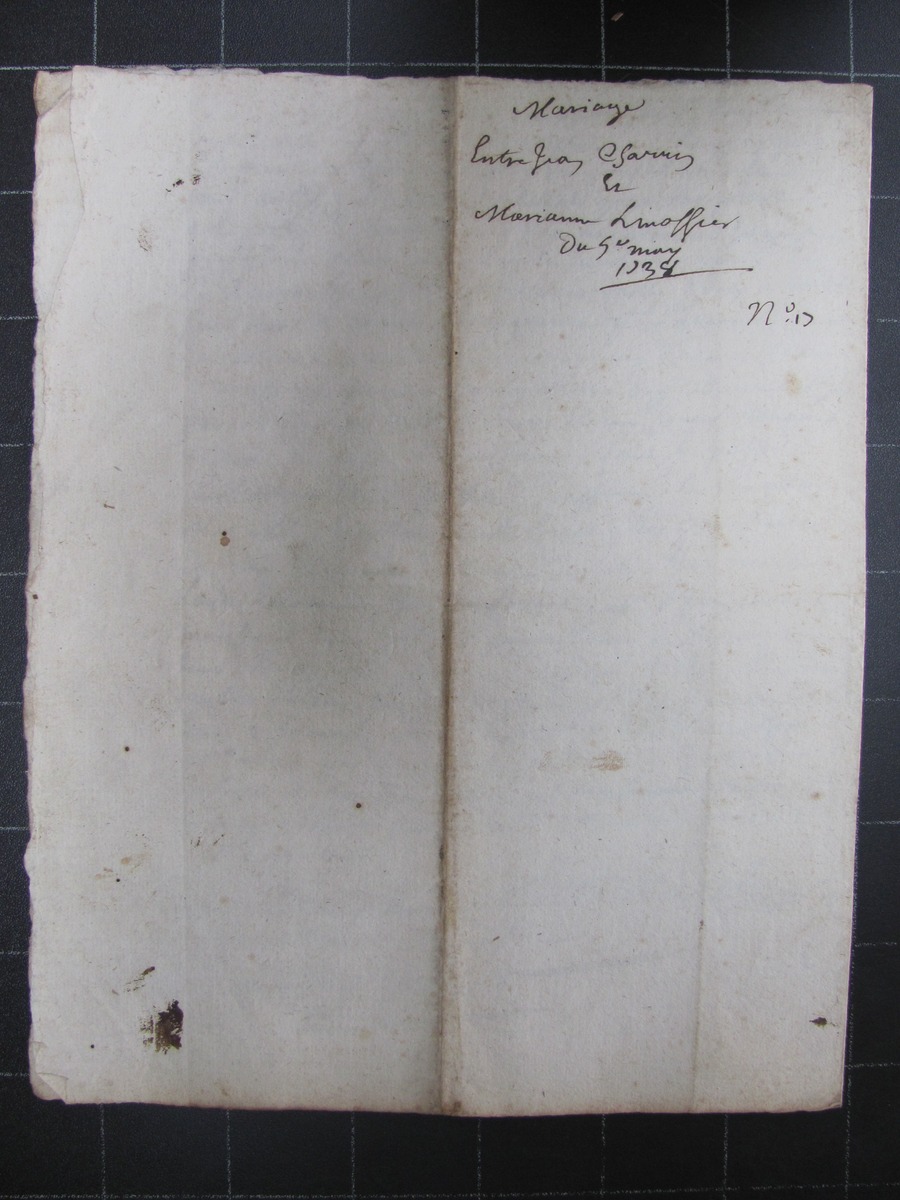 Mariage
Entre Jean Charvin
Et
Marianne Limossier
Du 5e may
1738
No. 17